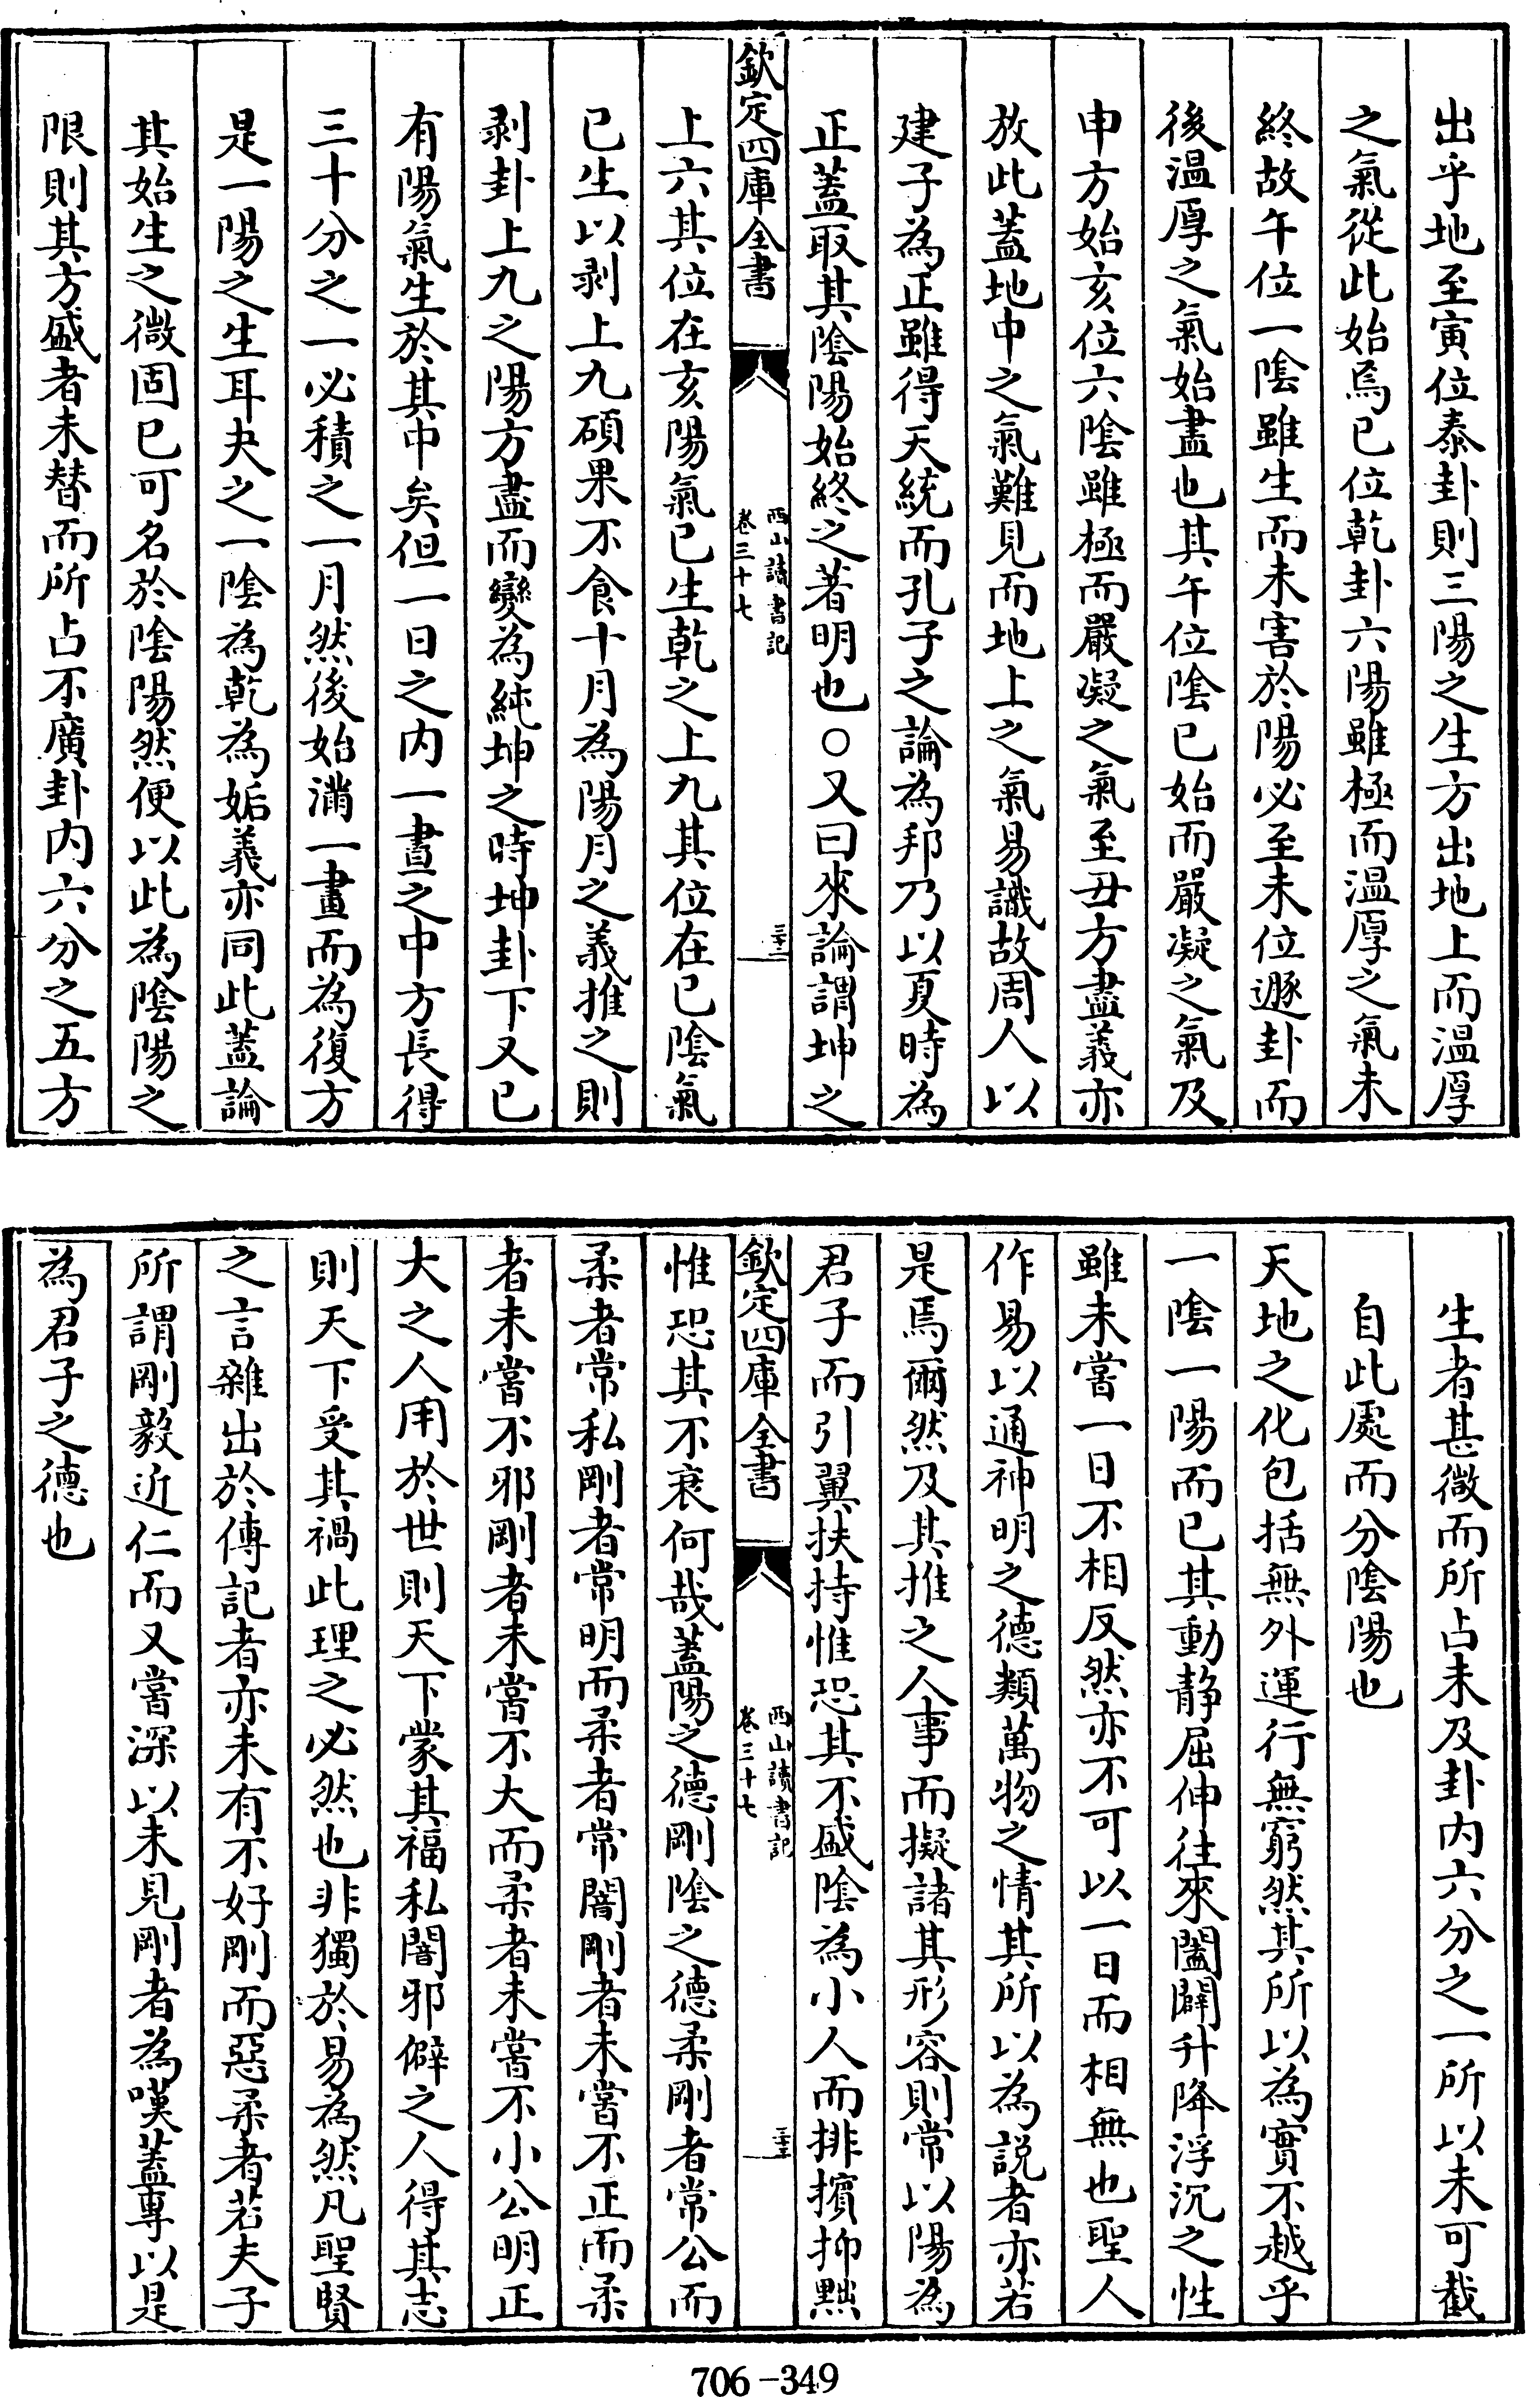 出乎地至寅位泰卦則三陽之生方出地上而温厚
之氣從此始焉已位乾卦六陽雖極而温厚之氣未
終故午位一陰雖生而未害於陽必至未位遯卦而
後温厚之氣始盡也其午位陰已始而嚴凝之氣及
申方始亥位六陰雖極而嚴凝之氣至丑方盡義亦
放此蓋地中之氣難見而地上之氣易識故周人以
建子為正雖得天統而孔子之論為邦乃以夏時為
正蓋取其陰陽始終之著明也○又曰來論謂坤之
欽定四庫全書
西山讀書記
卷三十七
三十二
上六其位在亥陽氣已生乾之上九其位在已陰氣
已生以剥上九碩果不食十月為陽月之義推之則
剥卦上九之陽方盡而變為純坤之時坤卦下又已
有陽氣生於其中矣但一日之内一晝之中方長得
三十分之一必積之一月然後始滿一畫而為復方
是一陽之生耳夬之一陰為乾為姤義亦同此蓋論
其始生之微固已可名於陰陽然便以此為陰陽之
限則其方盛者未替而所占不廣卦内六分之五方
生者甚微而所占未及卦内六分之一所以未可截
自此處而分陰陽也
天地之化包括無外運行無窮然其所以為實不越乎
一陰一陽而已其動静屈伸往來闔闢升降浮沉之性
雖未嘗一日不相反然亦不可以一日而相無也聖人
作易以通神明之德類萬物之情其所以為説者亦若
是焉爾然及其推之人事而擬諸其形容則常以陽為
君子而引翼扶持惟恐其不盛陰為小人而排擯抑黜
欽定四庫全書
西山讀書記
卷三十七
三十三
惟恐其不衰何哉蓋陽之德剛陰之德柔剛者常公而
柔者常私剛者常明而柔者常闇剛者未嘗不正而柔
者未嘗不邪剛者未嘗不大而柔者未嘗不小公明正
大之人用於世則天下蒙其福私闇邪僻之人得其志
則天下受其禍此理之必然也非獨於易為然凡聖賢
之言雜出於傳記者亦未有不好剛而惡柔者若夫子
所謂剛毅近仁而又嘗深以未見剛者為嘆蓋專以是
為君子之德也
706-349